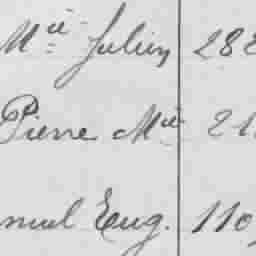 Mie Julien 282
Pierre Mie 21
nuel Eug. 110